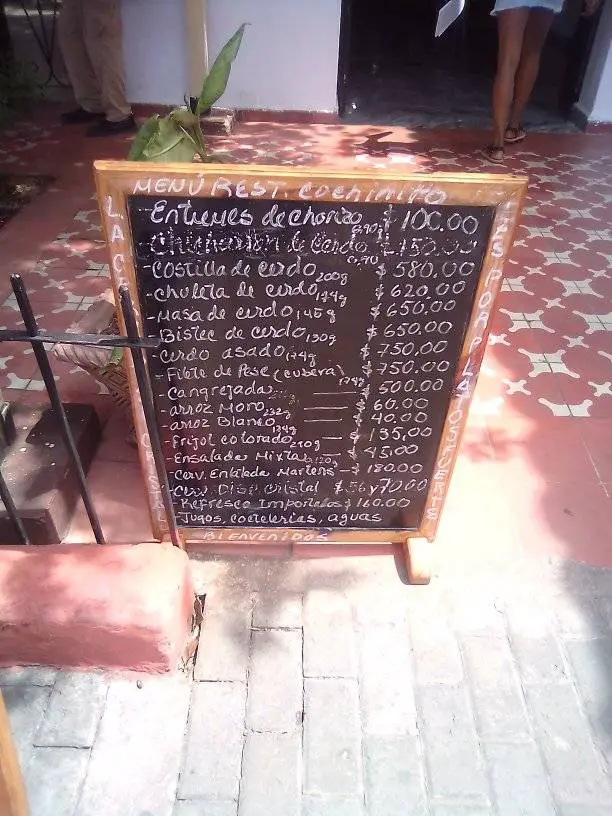 MENÚ REST. Cochinito
Entremes de chorizo $ 100.00
- Chicharron de Cerdo $ 150.00
- Costilla de cerdo 200g $ 580.00
- Chuleta de cerdo 174g $ 620.00
- Masa de cerdo 145g $ 650.00
- Bistec de cerdo 130g $ 650.00
- Cerdo asado 174g $ 750.00
- Filete de Pese (cubera) 174g $ 750.00
- Cangrejadas $ 500.00
- arroz Moro 232g $ 60.00
- arroz Blanco 134g $ 40.00
- Frijol colorado 270g $ 135.00
- Ensalada Mixta 120g $ 45.00
- Cerv. Enlatada $ 180.00
- Cerv. Disp. Cristal $ 56 y 70.00
- Refresco Importados $ 160.00
- Jugos, coctelerias, aguas
BIENVENIDOS